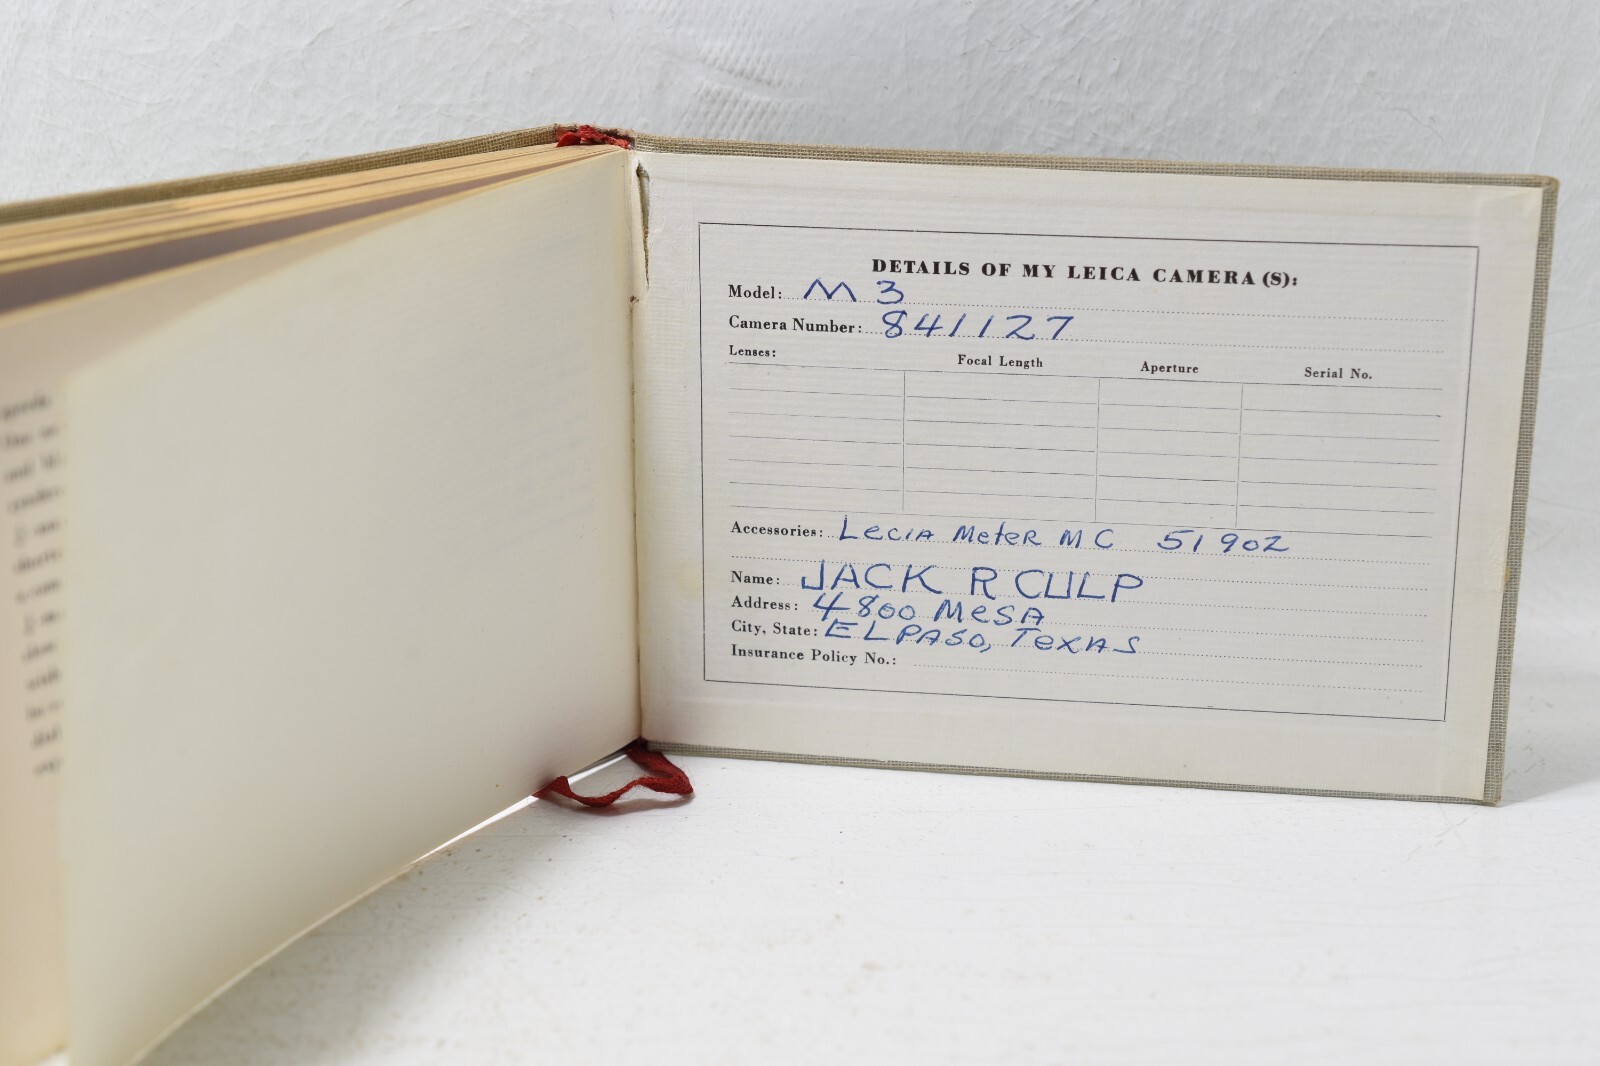 DETAILS OF MY LEICA CAMERA (S):
Model: M 3
Camera Number: 841127
Lenses: Focal Length Aperture Serial No.
Accessories: LeciA MeteR M C 51902
Name: JACK R CULP
Address: 4800 MeSA
City, State: EL PASO, TexAS
Insurance Policy No.: